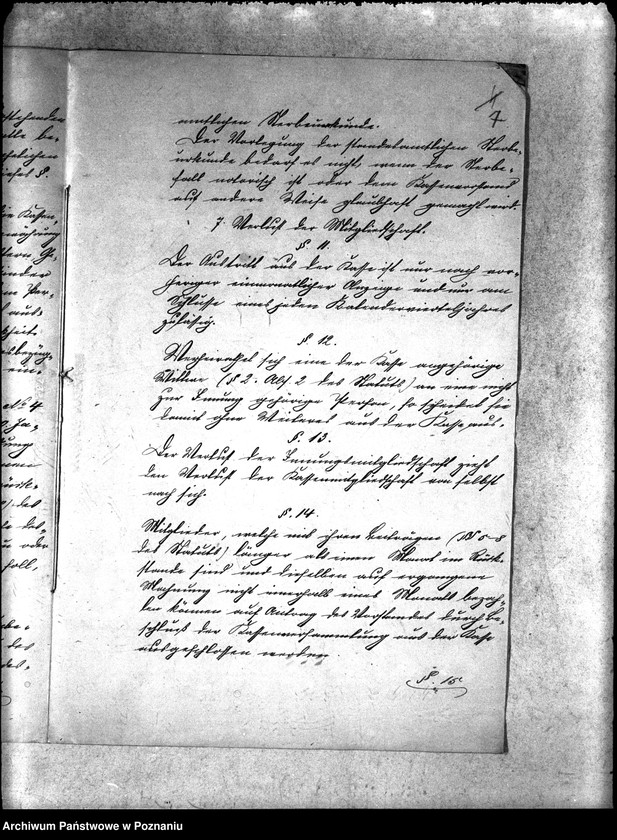 4
amtlichen Sterbeurkunde.
Der Vorlegung der standesamtlichen Sterbe-
urkunde bedarf es nicht, wenn der Sterbe-
fall notorisch ist oder dem Kassenvorstand
auf andere Weise glaubhaft gemacht wird.
7 Verlust der Mitgliedschaft.
§ 11.
Der Austritt aus der Kasse ist nur nach vor-
heriger einmonatlicher Anzeige und nur am
Schlusse eines jeden Kalendervierteljahres
zulässig.
§ 12.
Verheirathet sich eine der Kasse angehörige
Wittwe (§ 2. Abs. 2 des Statuts) an eine nicht
zur Innung gehörige Person, so scheidet sie
damit ohne Weiteres aus der Kasse aus.
§. 13.
Der Verlust der Innungsmitgliedschaft zieht
den Verlust der Kassenmitgliedschaft von selbst
nach sich.
§. 14.
Mitglieder, welche mit ihren Beiträgen (§§ 5-8
des Statuts) länger als einen Monat im Rück-
stande sind und dieselben auf ergangene
Mahnung nicht innerhalb eines Monats bezah-
len können auf Antrag des Vorstandes durch Be-
schluß der Kassenversammlung aus der Kasse
ausgeschlossen werden.
§. 15.
Archiwum Państwowe w Poznaniu